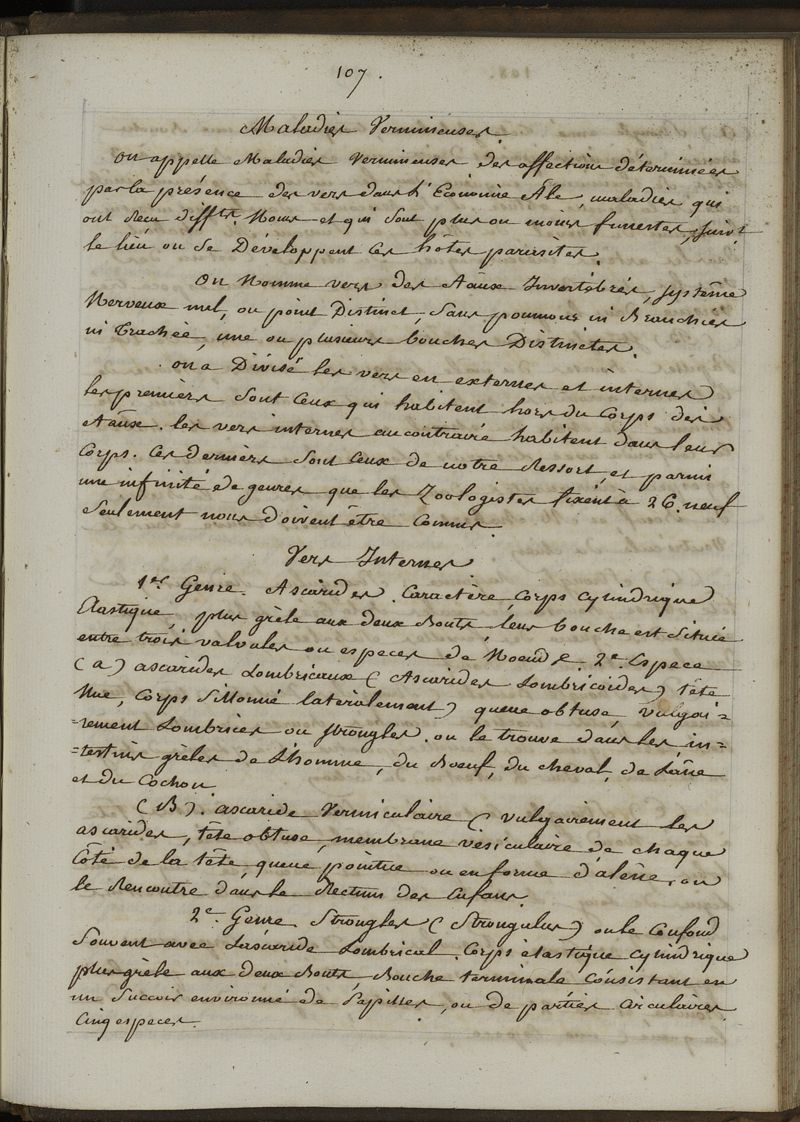 107.
Maladies Vermineuses.
on appelle Maladies Vermineuses des affections déterminées
par la présence des vers dans l'Économie Ale, maladies qui
ont reçu différts. Noms et qui sont plus ou moins funestes, suivt
le lieu ou se Développent ces hôtes parasites.
On Nomme vers des Aãux Invertébrés, système
Nerveux nul, ou point Distinct, sans poumons ni Branchies
ni Trachée, une ou plusieurs bouches Distinctes.
on a Divisé les vers en externes et internes
les premiers sont ceux qui habitent hors du Corps des
Aãux. les vers internes au contraire habitent dans leur
Corps. Ces derniers sont ceux de notre Ressort, et parmi
une infinité de genres que les Zoologistes fixent à 26. neuf
Seulement nous doivent être Connus.
Vers Internes
1er Genre. Ascarides. Caractère, Corps cylindrique
Elastique, plus grèle aux deux Bouts, leur bouche est située
entre trois valvules ou especes de Noeuds. 2e. Espece
(a) ascarides Lombricaux (Ascarides Lombricoïdes) tête
Nue, Corps Sillonné latéralement) queue obtuse, Vulgai=
=rement Lombrics ou strongles. on le trouve dans les in=
=testins grèles de L'homme, du Boeuf, du cheval, de L'âne
et du Cochon.
(B). ascaride Vermiculaire (vulgairement les
ascarides, tête obtuse, membrane vésiculaire de chaque
Côté de la tête, queue pointue ou en forme d'alène, on
le Rencontre dans le Rectum des Enfans.
2e. Genre Strongles (Strongulus) on le Confond
Souvent avec L'ascaride Lombrical. Corps élastique cylindrique
plus grèle aux deux Bouts, Bouche terminale Consistant en
un Sucoir environné de Papilles, ou de parties Circulaires
Cinq especes.